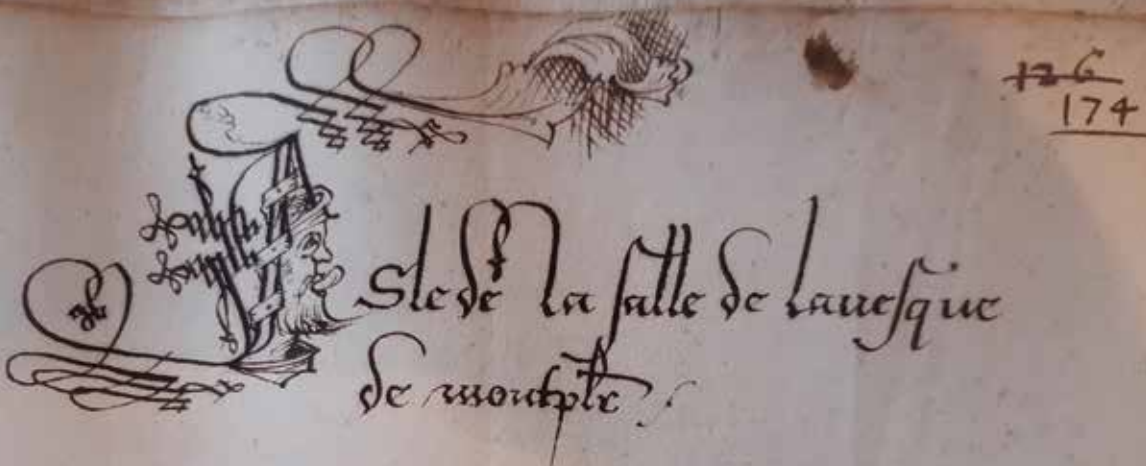 126
174
ISle de la salle de lauesque
de montplr